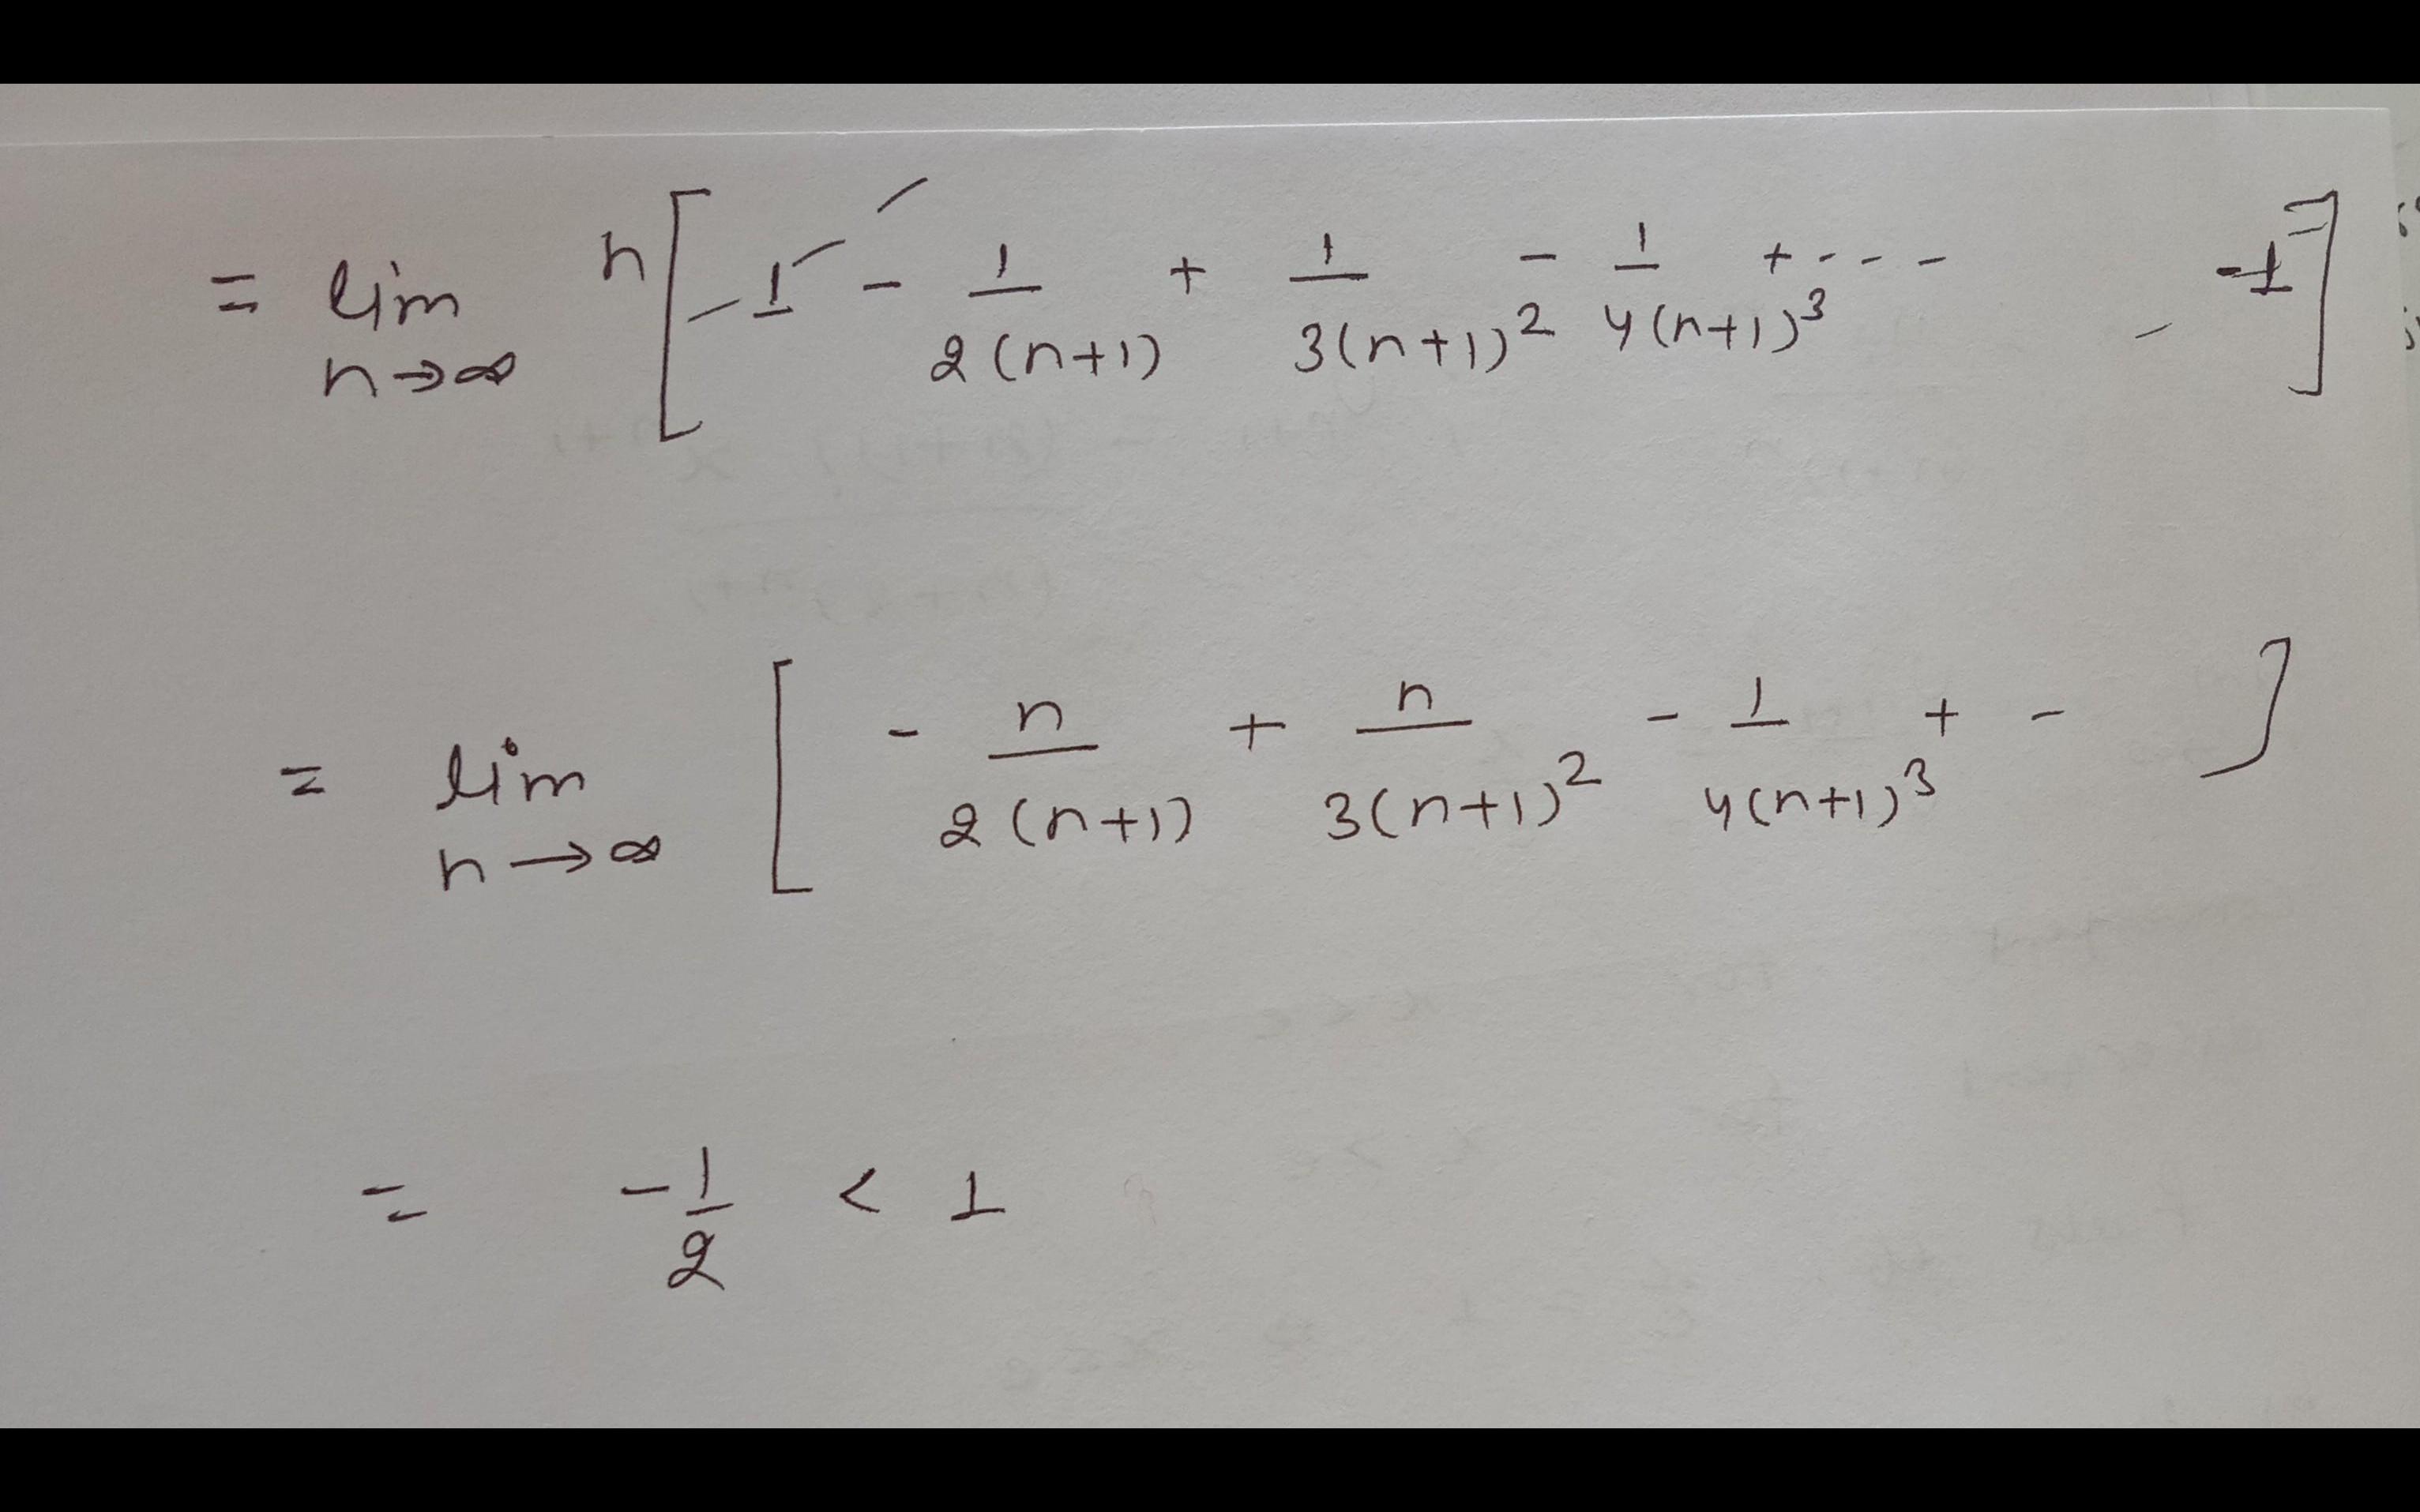 = lim n→∞ n[ 1 - 1/2(n+1) + 1/3(n+1)² - 1/4(n+1)³ + - - - -1 ]
= lim n→∞ [ - n/2(n+1) + n/3(n+1)² - 1/4(n+1)³ + - ]
= -1/2 < 1